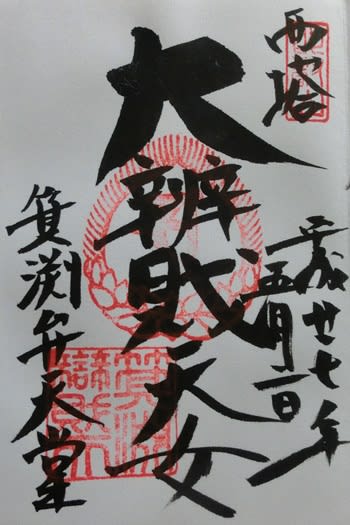 西塔
平成廿七年
五月二日
大辨財天女
箕淵弁天堂